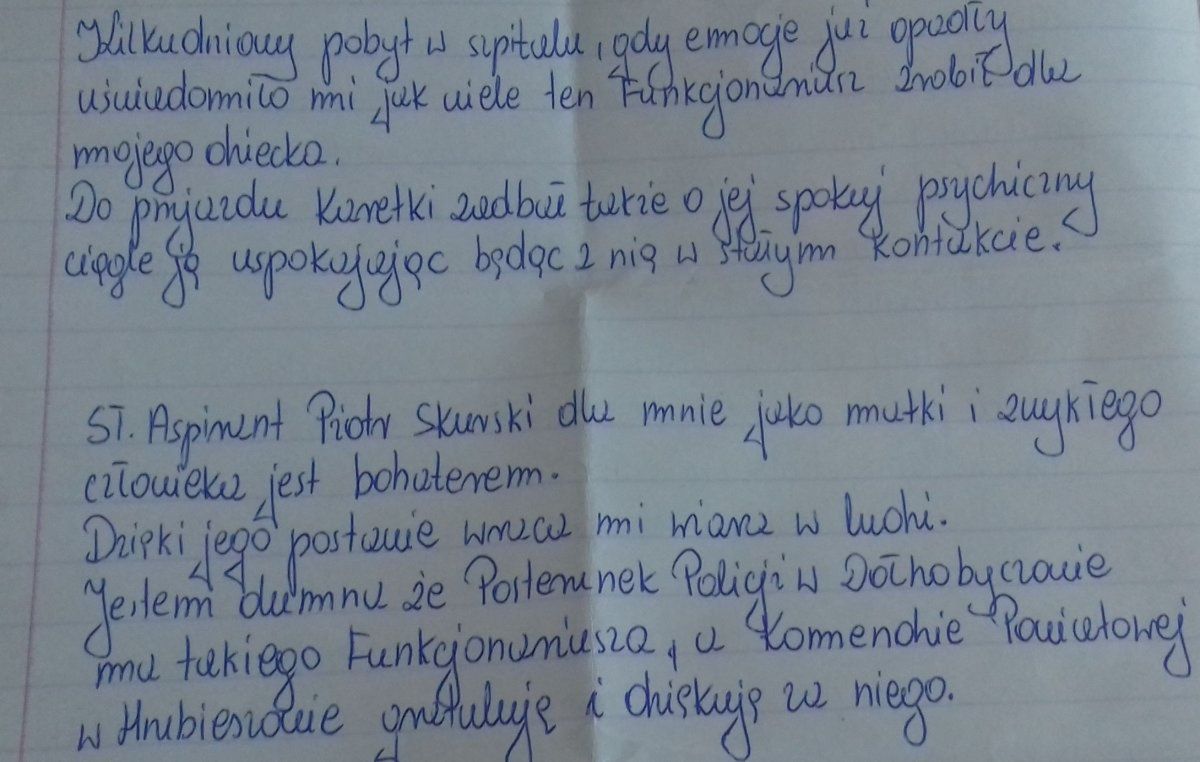 Kilkudniowy pobyt w szpitalu, gdy emocje już opadły
uświadomiło mi jak wiele ten Funkcjonariusz zrobił dla
mojego dziecka.
Do przyjazdu Karetki zadbał także o jej spokuj psychiczny
ciągle ją uspokajając będąc z nią w stałym kontakcie.
ST. Aspirant Piotr Skurski dla mnie jako matki i zwykłego
człowieka jest bohaterem.
Dzięki jego postawie wraca mi wiara w ludzi.
Jestem dumna że Posterunek Policji w Dołhobyczowie
ma takiego Funkcjonariusza, a Komendzie Powiatowej
w Hrubieszowie gratuluję i dziękuję za niego.